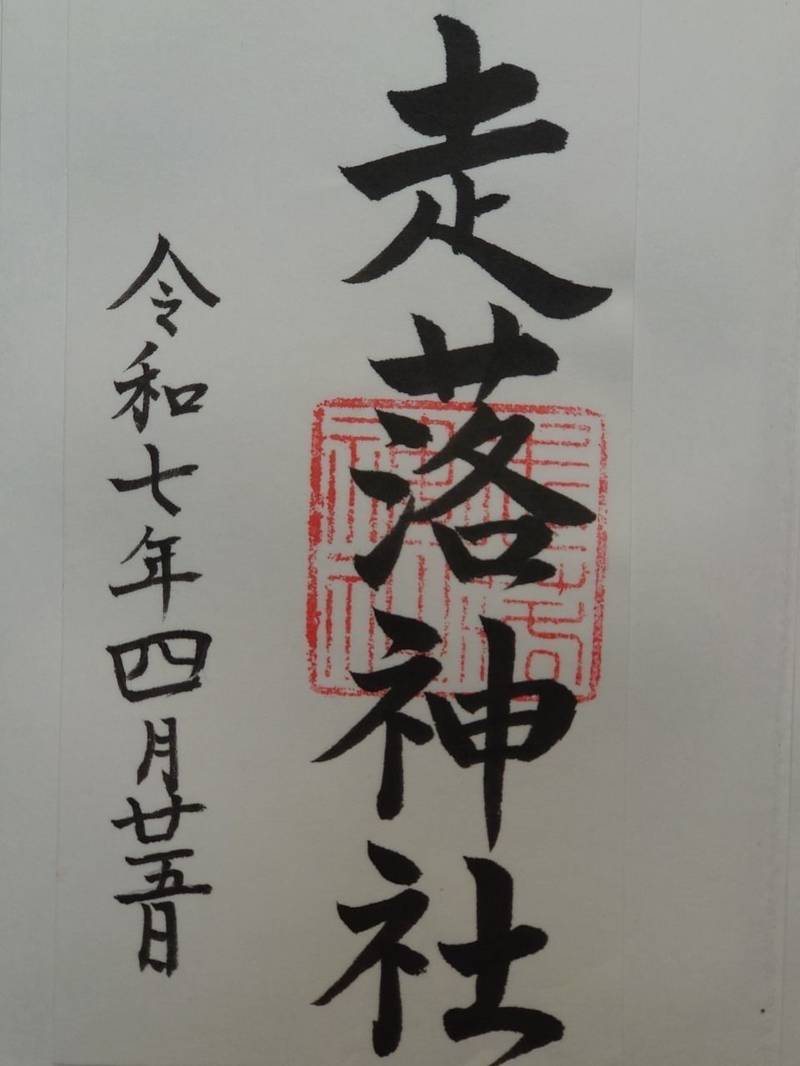 走落神社
令和七年四月廿五日